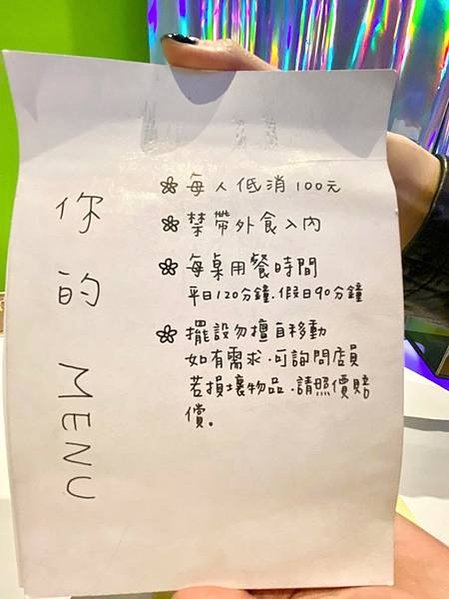 你的 MENU
每人低消100元
禁帶外食入內
每桌用餐時間
平日120分鐘.假日90分鐘
擺設勿擅自移動
如有需求.可詢問店員
若損壞物品.請照價賠
償。